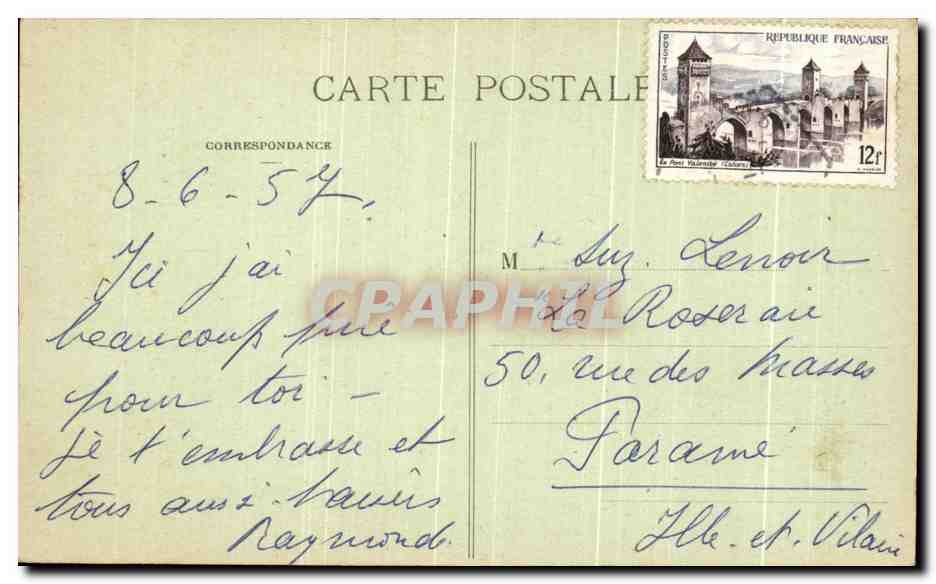 CARTE POSTALE
POSTES
REPUBLIQUE FRANÇAISE
12f
Le Pont Valentré (Cahors)
CORRESPONDANCE
8-6-57.
Ici j'ai
beaucoup prié
pour toi -
je t'embrasse et
tous aussi baisers
Raymonde.
Mlle Suz. Lenoir
"La Roseraie
50, rue des Masses
Paramé
Ille-et-Vilaine
CPARHIL